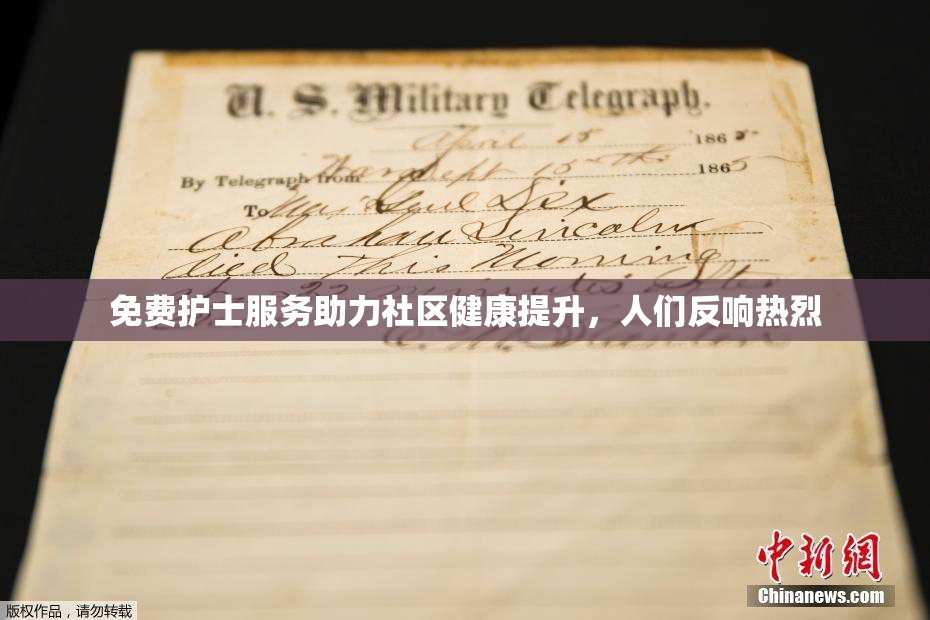 U. S. Military Telegraph.
April 15 1865
By Telegraph from War Dept 15th 1865
To Maj Genl Dix
Abraham Lincoln
died This Morning
22 minutes after
免费护士服务助力社区健康提升，人们反响热烈
Stanton
中新網
Chinanews.com
版权作品，请勿转载